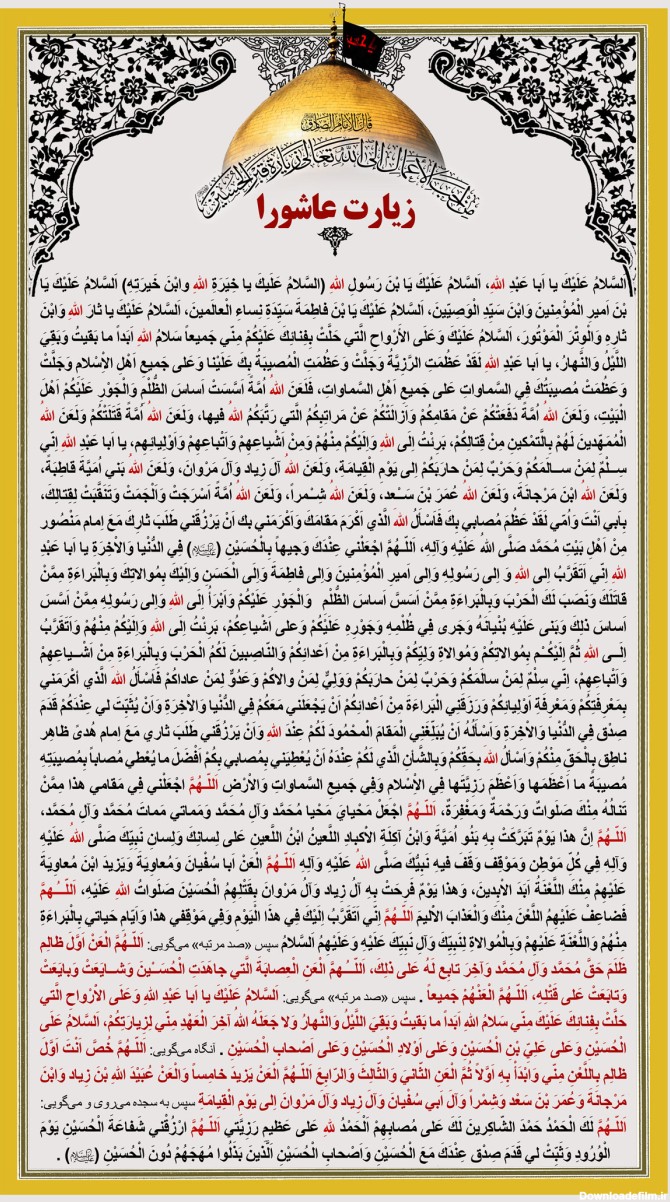 یا حسین
قالَ الإمامُ الصّادِق
مِنْ اَحَبِّ الاَعْمالِ اِلَی اللهِ تَعالی زِیارَةُ قَبْرِ الْحُسَیْن
زیارت عاشورا
اَلسَّلامُ عَلَيْكَ يا اَبا عَبْدِ اللهِ، اَلسَّلامُ عَلَيْكَ يَا بْنَ رَسُولِ اللهِ (السَّلامُ عَلَيكَ يا خِيَرَةِ اللهِ وابْنَ خَيرَتِهِ) اَلسَّلامُ عَلَيْكَ يَا
بْنَ اَميرِ الْمُؤْمِنينَ وَابْنَ سَيِّدِ الْوَصِيّينَ، اَلسَّلامُ عَلَيْكَ يَا بْنَ فاطِمَةَ سَيِّدَةِ نِساءِ الْعالَمينَ، اَلسَّلامُ عَلَيْكَ يا ثارَ اللهِ وَابْنَ
ثارِهِ وَالْوِتْرَ الْمَوْتُورَ، اَلسَّلامُ عَلَيْكَ وَعَلَى الاَْرْواحِ الَّتي حَلَّتْ بِفِنائِكَ عَلَيْكُمْ مِنّي جَميعاً سَلامُ اللهِ اَبَداً ما بَقيتُ وَبَقِيَ
اللَّيْلُ وَالنَّهارُ، يا اَبا عَبْدِ اللهِ لَقَدْ عَظُمَتِ الرَّزِيَّةُ وَجَلَّتْ وَعَظُمَتِ الْمُصيبَةُ بِكَ عَلَيْنا وَعَلى جَميعِ اَهْلِ الاِْسْلامِ وَجَلَّتْ
وَعَظُمَتْ مُصيبَتُكَ فِي السَّماواتِ عَلى جَميعِ اَهْلِ السَّماواتِ، فَلَعَنَ اللهُ اُمَّةً اَسَّسَتْ اَساسَ الظُّلْمِ وَالْجَوْرِ عَلَيْكُمْ اَهْلَ
الْبَيْتِ، وَلَعَنَ اللهُ اُمَّةً دَفَعَتْكُمْ عَنْ مَقامِكُمْ وَاَزالَتْكُمْ عَنْ مَراتِبِكُمُ الَّتي رَتَّبَكُمُ اللهُ فيها، وَلَعَنَ اللهُ اُمَّةً قَتَلَتْكُمْ وَلَعَنَ اللهُ
الْمُمَهِّدينَ لَهُمْ بِالَّتمْكينِ مِنْ قِتالِكُمْ، بَرِئْتُ اِلَى اللهِ وَاِلَيْكُمْ مِنْهُمْ وَمِنْ اَشْياعِهِمْ وَاَتْباعِهِمْ وَاَوْلِيائِهِم، يا اَبا عَبْدِ اللهِ اِنّي
سِـلْمٌ لِمَنْ سـالَمَكُمْ وَحَرْبٌ لِمَنْ حارَبَكُمْ اِلى يَوْمِ الْقِيامَةِ، وَلَعَنَ اللهُ آلَ زِياد وَآلَ مَرْوانَ، وَلَعَنَ اللهُ بَني اُمَيَّةَ قاطِبَةً،
وَلَعَنَ اللهُ ابْنَ مَرْجانَةَ، وَلَعَنَ اللهُ عُمَرَ بْنَ سَـعْد، وَلَعَنَ اللهُ شِـمْراً، وَلَعَنَ اللهُ اُمَّةً اَسْرَجَتْ وَاَلْجَمَتْ وَتَنَقَّبَتْ لِقِتالِكَ،
بِاَبي اَنْتَ وَاُمّي لَقَدْ عَظُمَ مُصابي بِكَ فَاَسْأَلُ اللهَ الَّذي اَكْرَمَ مَقامَكَ وَاَكْرَمَني بِكَ اَنْ يَرْزُقَني طَلَبَ ثارِكَ مَعَ اِمام مَنْصُور
مِنْ اَهْلِ بَيْتِ مُحَمَّد صَلَّى اللهُ عَلَيْهِ وَآلِهِ، اَللّـهُمَّ اجْعَلْني عِنْدَكَ وَجيهاً بِالْحُسَيْنِ (علیه‌السلام) فِي الدُّنْيا وَالاْخِرَةِ يا اَبا عَبْدِ
اللهِ اِنّي اَتَقَرَّبُ اِلى اللهِ وَ اِلى رَسُولِهِ وَاِلى اَميرِ الْمُؤْمِنينَ وَاِلى فاطِمَةَ وَاِلَى الْحَسَنِ وَاِلَيْكَ بِمُوالاتِكَ وَبِالْبَراءَةِ مِمَّنْ
قاتَلَكَ وَنَصَبَ لَكَ الْحَرْبَ وَبِالْبَراءَةِ مِمَّنْ اَسَسَّ اَساسَ الظُّلْمِ وَالْجَوْرِ عَلَيْكُمْ وَاَبْرَأُ اِلَى اللهِ وَاِلى رَسُولِهِ مِمَّنْ اَسَسَّ
اَساسَ ذلِكَ وَبَنى عَلَيْهِ بُنْيانَهُ وَجَرى فِي ظُلْمِهِ وَجَوْرِهِ عَلَيْكُمْ وَعَلى اَشْياعِكُمْ، بَرِئْتُ اِلَى اللهِ وَاِلَيْكُمْ مِنْهُمْ وَاَتَقَرَّبُ
اِلَـى اللهِ ثُمَّ اِلَيْكُـمْ بِمُوالاتِكُمْ وَمُوالاةِ وَلِيِّكُمْ وَبِالْبَراءَةِ مِنْ اَعْدائِكُمْ وَالنّاصِبينَ لَكُمُ الْحَرْبَ وَبِالْبَراءَةِ مِنْ اَشْـياعِهِمْ
وَاَتْباعِهِمْ، اِنّي سِلْمٌ لِمَنْ سالَمَكُمْ وَحَرْبٌ لِمَنْ حارَبَكُمْ وَوَلِىٌّ لِمَنْ والاكُمْ وَعَدُوٌّ لِمَنْ عاداكُمْ فَاَسْأَلُ اللهَ الَّذي اَكْرَمَني
بِمَعْرِفَتِكُمْ وَمَعْرِفَةِ اَوْلِيائِكُمْ وَرَزَقَنِي الْبَراءَةَ مِنْ اَعْدائِكُمْ اَنْ يَجْعَلَني مَعَكُمْ فِي الدُّنْيا وَالاْخِرَةِ وَاَنْ يُثَبِّتَ لي عِنْدَكُمْ قَدَمَ
صِدْق فِي الدُّنْيا وَالاْخِرَةِ وَاَسْأَلُهُ اَنْ يُبَلِّغَنِي الْمَقامَ الْمَحْمُودَ لَكُمْ عِنْدَ اللهِ وَاَنْ يَرْزُقَني طَلَبَ ثاري مَعَ اِمام هُدىً ظاهِر
ناطِق بِالْحَقِّ مِنْكُمْ وَاَسْألُ اللهَ بِحَقِّكُمْ وَبِالشَّأنِ الَّذي لَكُمْ عِنْدَهُ اَنْ يُعْطِيَني بِمُصابي بِكُمْ اَفْضَلَ ما يُعْطي مُصاباً بِمُصيبَتِهِ
مُصيبَةً ما اَعْظَمَها وَاَعْظَمَ رَزِيَّتَها فِي الاِْسْلامِ وَفِي جَميعِ السَّماواتِ وَالاْرْضِ اَللّـهُمَّ اجْعَلْني في مَقامي هذا مِمَّنْ
تَنالُهُ مِنْكَ صَلَواتٌ وَرَحْمَةٌ وَمَغْفِرَةٌ، اَللّـهُمَّ اجْعَلْ مَحْيايَ مَحْيا مُحَمَّد وَآلِ مُحَمَّد وَمَماتي مَماتَ مُحَمَّد وَآلِ مُحَمَّد،
اَللّـهُمَّ اِنَّ هذا يَوْمٌ تَبَرَّكَتْ بِهِ بَنُو اُمَيَّةَ وَابْنُ آكِلَةِ الاَكبادِ اللَّعينُ ابْنُ اللَّعينِ عَلى لِسانِكَ وَلِسانِ نَبِيِّكَ صَلَّى اللهُ عَلَيْهِ
وَآلِهِ فِي كُلِّ مَوْطِن وَمَوْقِف وَقَفَ فيهِ نَبِيُّكَ صَلَّى اللهُ عَلَيْهِ وَآلِهِ اَللّـهُمَّ الْعَنْ اَبا سُفْيانَ وَمُعاوِيَةَ وَيَزيدَ ابْنَ مُعاوِيَةَ
عَلَيْهِمْ مِنْكَ اللَّعْنَةُ اَبَدَ الاْبِدينَ، وَهذا يَوْمٌ فَرِحَتْ بِهِ آلُ زِياد وَآلُ مَرْوانَ بِقَتْلِهِمُ الْحُسَيْنَ صَلَواتُ اللهِ عَلَيْهِ، اَللّــهُمَّ
فَضاعِفْ عَلَيْهِمُ اللَّعْنَ مِنْكَ وَالْعَذابَ الاَليمَ اَللّـهُمَّ اِنّي اَتَقَرَّبُ اِلَيْكَ فِي هذَا الْيَوْمِ وَفِي مَوْقِفي هذا وَاَيّامِ حَياتي بِالْبَراءَةِ
مِنْهُمْ وَاللَّعْنَةِ عَلَيْهِمْ وَبِالْمُوالاةِ لِنَبِيِّكَ وَآلِ نَبِيِّكَ عَلَيْهِ وَعَلَيْهِمُ السَّلامُ . سپس «صد مرتبه» می‌گویی: اَللّـهُمَّ الْعَنْ اَوَّلَ ظالِم
ظَلَمَ حَقَّ مُحَمَّد وَآلِ مُحَمَّد وَآخِرَ تابِع لَهُ عَلى ذلِكَ، اَللّــهُمَّ الْعَنِ الْعِصابَةَ الَّتي جاهَدَتِ الْحُسَــيْنَ وَشــايَعَتْ وَبايَعَتْ
وَتابَعَتْ عَلى قَتْلِهِ، اَللّـهُمَّ الْعَنْهُمْ جَميعاً . سپس «صد مرتبه» می‌گویی: اَلسَّلامُ عَلَيْكَ يا اَبا عَبْدِ اللهِ وَعَلَى الاَْرْواحِ الَّتي
حَلَّتْ بِفِنائِكَ عَلَيْكَ مِنّي سَلامُ اللهِ اَبَداً ما بَقيتُ وَبَقِيَ اللَّيْلُ وَالنَّهارُ وَلا جَعَلَهُ اللهُ آخِرَ الْعَهْدِ مِنّي لِزِيارَتِكُمْ، اَلسَّلامُ عَلَى
الْحُسَيْنِ وَعَلى عَلِيِّ بْنِ الْحُسَيْنِ وَعَلى اَوْلادِ الْحُسَيْنِ وَعَلى اَصْحابِ الْحُسَيْنِ . آنگاه می‌گویی: اَللّـهُمَّ خُصَّ اَنْتَ اَوَّلَ
ظالِم بِاللَّعْنِ مِنّي وَابْدَأْ بِهِ اَوَّلاً ثُمَّ الْعَنِ الثّانِيَ وَالثّالِثَ وَالرّابِعَ اَللّـهُمَّ الْعَنْ يَزيدَ خامِساً وَالْعَنْ عُبَيْدَ اللهِ بْنَ زِياد وَابْنَ
مَرْجانَةَ وَعُمَرَ بْنَ سَعْد وَشِمْراً وَآلَ اَبي سُفْيانَ وَآلَ زِياد وَآلَ مَرْوانَ اِلى يَوْمِ الْقِيامَةِ سپس به سجده می‌روی و می‌گویی:
اَللّـهُمَّ لَكَ الْحَمْدُ حَمْدَ الشّاكِرينَ لَكَ عَلى مُصابِهِمْ اَلْحَمْدُ للهِ عَلى عَظيمِ رَزِيَّتي اَللّـهُمَّ ارْزُقْني شَفاعَةَ الْحُسَيْنِ يَوْمَ
الْوُرُودِ وَثَبِّتْ لي قَدَمَ صِدْق عِنْدَكَ مَعَ الْحُسَيْنِ وَاَصْحابِ الْحُسَيْنِ الَّذينَ بَذَلُوا مُهَجَهُمْ دُونَ الْحُسَيْنِ (علیه‌السلام) .
Downloadefilm.ir